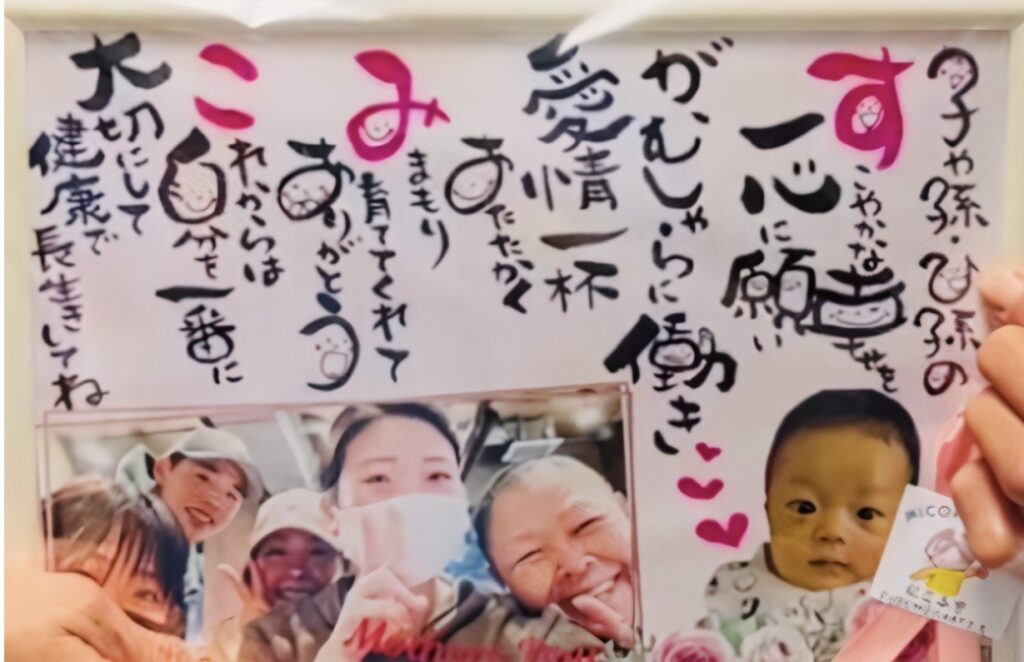 子や孫・ひ孫の
すこやかな幸せを
一心に願い
がむしゃらに働き
愛情一杯
あたたかく
みまもり
育ててくれて
ありがとう
これからは
自分を一番に
大切にして
健康で長生きしてね